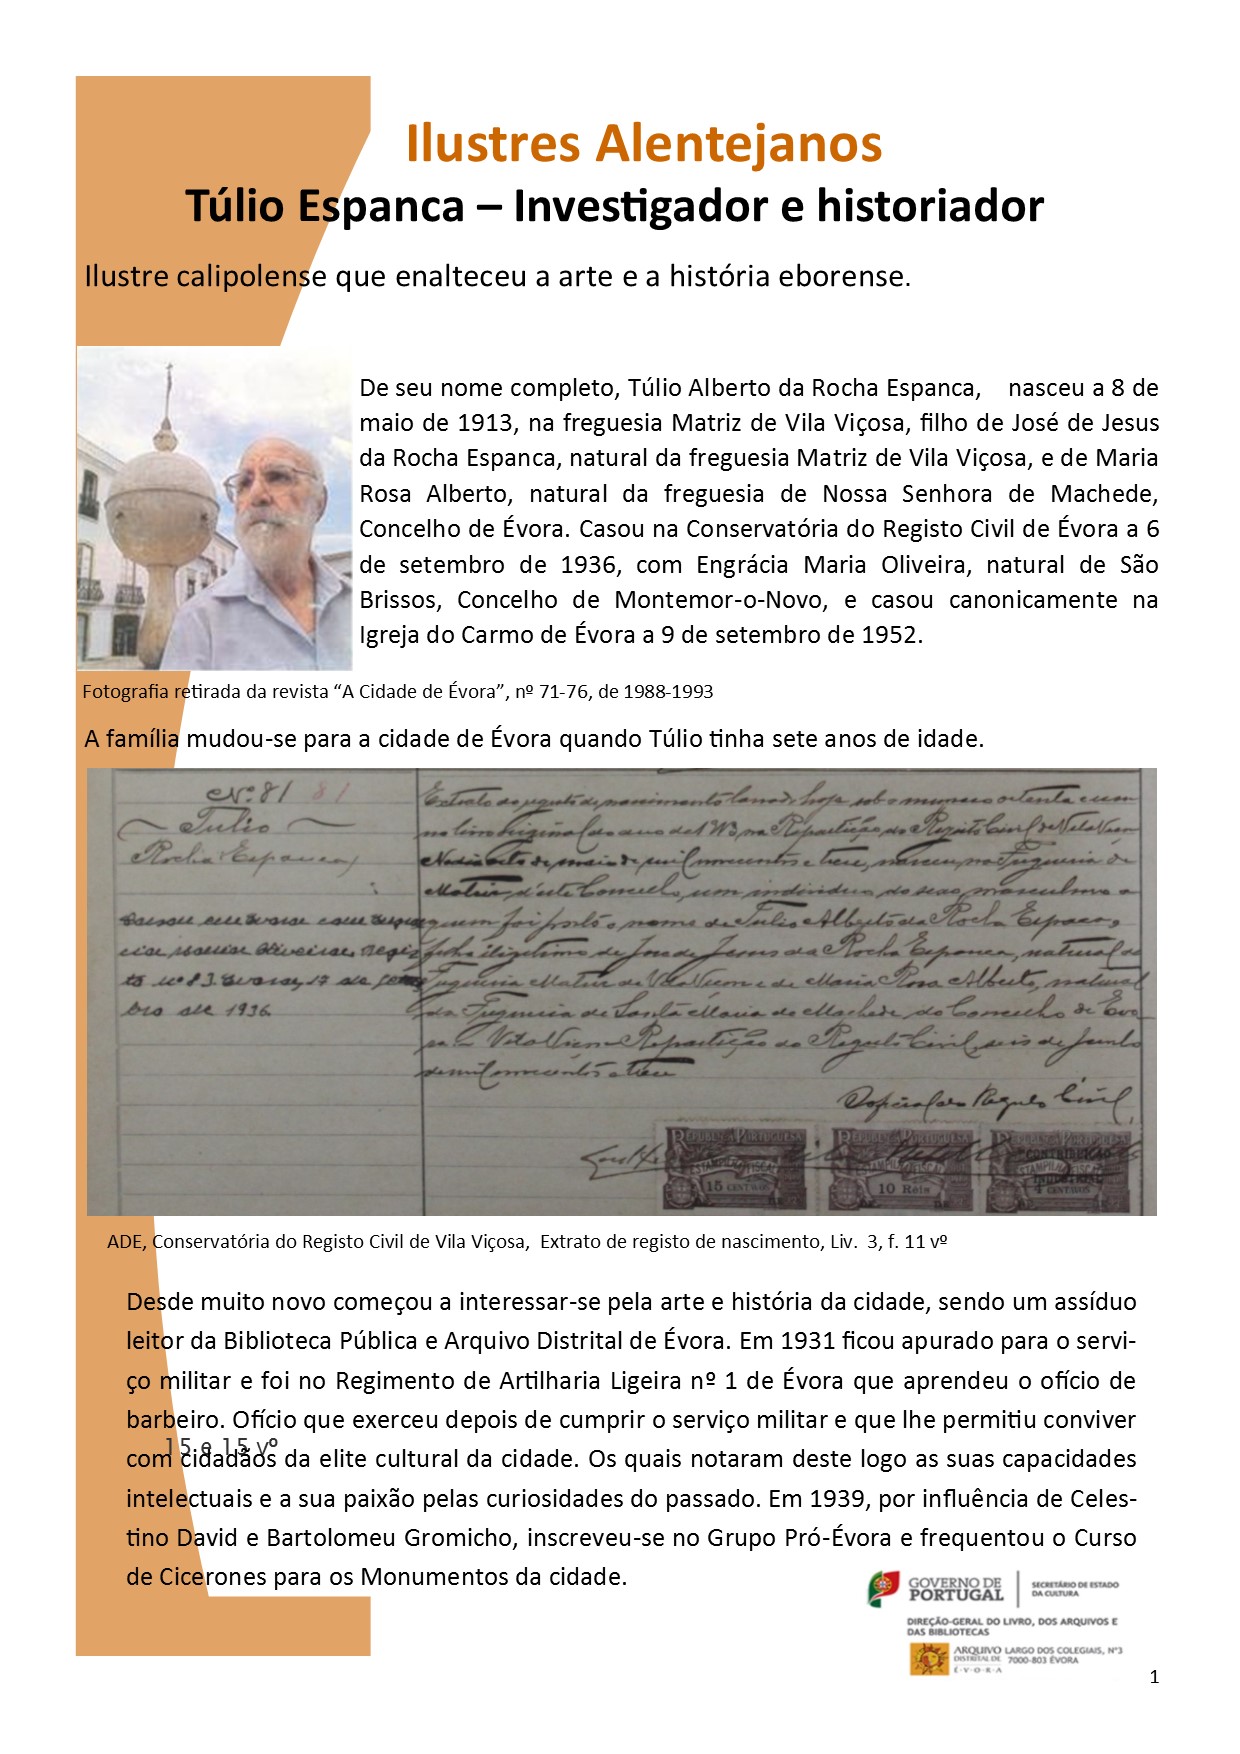 Ilustres Alentejanos
Túlio Espanca – Investigador e historiador
Ilustre calipolense que enalteceu a arte e a história eborense.
De seu nome completo, Túlio Alberto da Rocha Espanca, nasceu a 8 de
maio de 1913, na freguesia Matriz de Vila Viçosa, filho de José de Jesus
da Rocha Espanca, natural da freguesia Matriz de Vila Viçosa, e de Maria
Rosa Alberto, natural da freguesia de Nossa Senhora de Machede,
Concelho de Évora. Casou na Conservatória do Registo Civil de Évora a 6
de setembro de 1936, com Engrácia Maria Oliveira, natural de São
Brissos, Concelho de Montemor-o-Novo, e casou canonicamente na
Igreja do Carmo de Évora a 9 de setembro de 1952.
Fotografia retirada da revista “A Cidade de Évora”, nº 71-76, de 1988-1993
A família mudou-se para a cidade de Évora quando Túlio tinha sete anos de idade.
Nº 81 81
Tulio
Rocha Espanca
bro de 1936
Extrato do registo de nascimento lavrado hoje sob o numero oitenta e um
No dia oito de maio de mil novecentos e treze, nasceu na Freguesia de
Matriz d'este Concelho, um individuo do sexo masculino a
quem foi posto o nome de Tulio Alberto da Rocha Espanca,
filho ilegitimo de José de Jesus da Rocha Espanca, natural da
Freguesia Matriz de Vila Viçosa e de Maria Rosa Alberto, natural
da Freguesia de Santa Maria de Machede do Concelho de Evo
ra. Vila Viçosa Repartição do Registo Civil, seis de Junho
de mil novecentos e treze
O oficial do Registo Civil,
REPUBLICA PORTUGUESA REPUBLICA PORTUGUESA REPUBLICA PORTUGUESA
ESTAMPILHA FISCAL ESTAMPILHA FISCAL CONTRIBUIÇÃO INDUSTRIAL
15 CENTAVOS 10 Réis 4 CENTAVOS
ADE, Conservatória do Registo Civil de Vila Viçosa, Extrato de registo de nascimento, Liv. 3, f. 11 vº
Desde muito novo começou a interessar-se pela arte e história da cidade, sendo um assíduo
leitor da Biblioteca Pública e Arquivo Distrital de Évora. Em 1931 ficou apurado para o servi-
ço militar e foi no Regimento de Artilharia Ligeira nº 1 de Évora que aprendeu o ofício de
barbeiro. Ofício que exerceu depois de cumprir o serviço militar e que lhe permitiu conviver
15 e 15 vº
com cidadãos da elite cultural da cidade. Os quais notaram deste logo as suas capacidades
intelectuais e a sua paixão pelas curiosidades do passado. Em 1939, por influência de Celes-
tino David e Bartolomeu Gromicho, inscreveu-se no Grupo Pró-Évora e frequentou o Curso
de Cicerones para os Monumentos da cidade.
GOVERNO DE
PORTUGAL
SECRETÁRIO DE ESTADO
DA CULTURA
DIREÇÃO-GERAL DO LIVRO, DOS ARQUIVOS E
DAS BIBLIOTECAS
ARQUIVO
DISTRITAL DE
É·V·O·R·A
LARGO DOS COLEGIAIS, Nº3
7000-803 ÉVORA
1